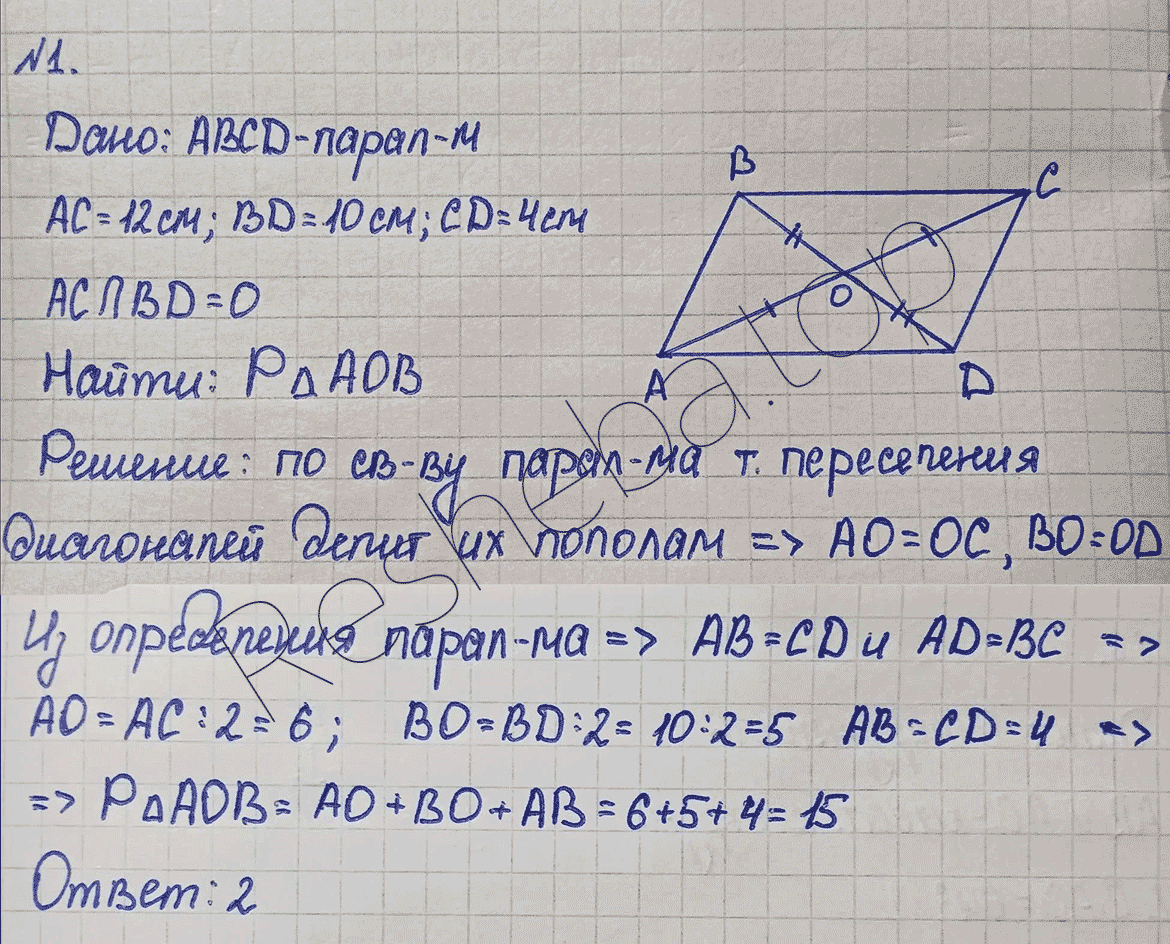 №1.
Дано: ABCD-парал-м
AC=12см; BD=10см; CD=4см
AC∩BD=O
Найти: P△AOB
B
C
O
A
D
Решение: по св-ву парал-ма т. пересечения
диагоналей делит их пополам => AO=OC, BO=OD
Из определения парал-ма => AB=CD и AD=BC =>
AO=AC:2=6; BO=BD:2=10:2=5 AB=CD=4 =>
=> P△AOB=AO+BO+AB=6+5+4=15
Ответ: 2
Reshebator